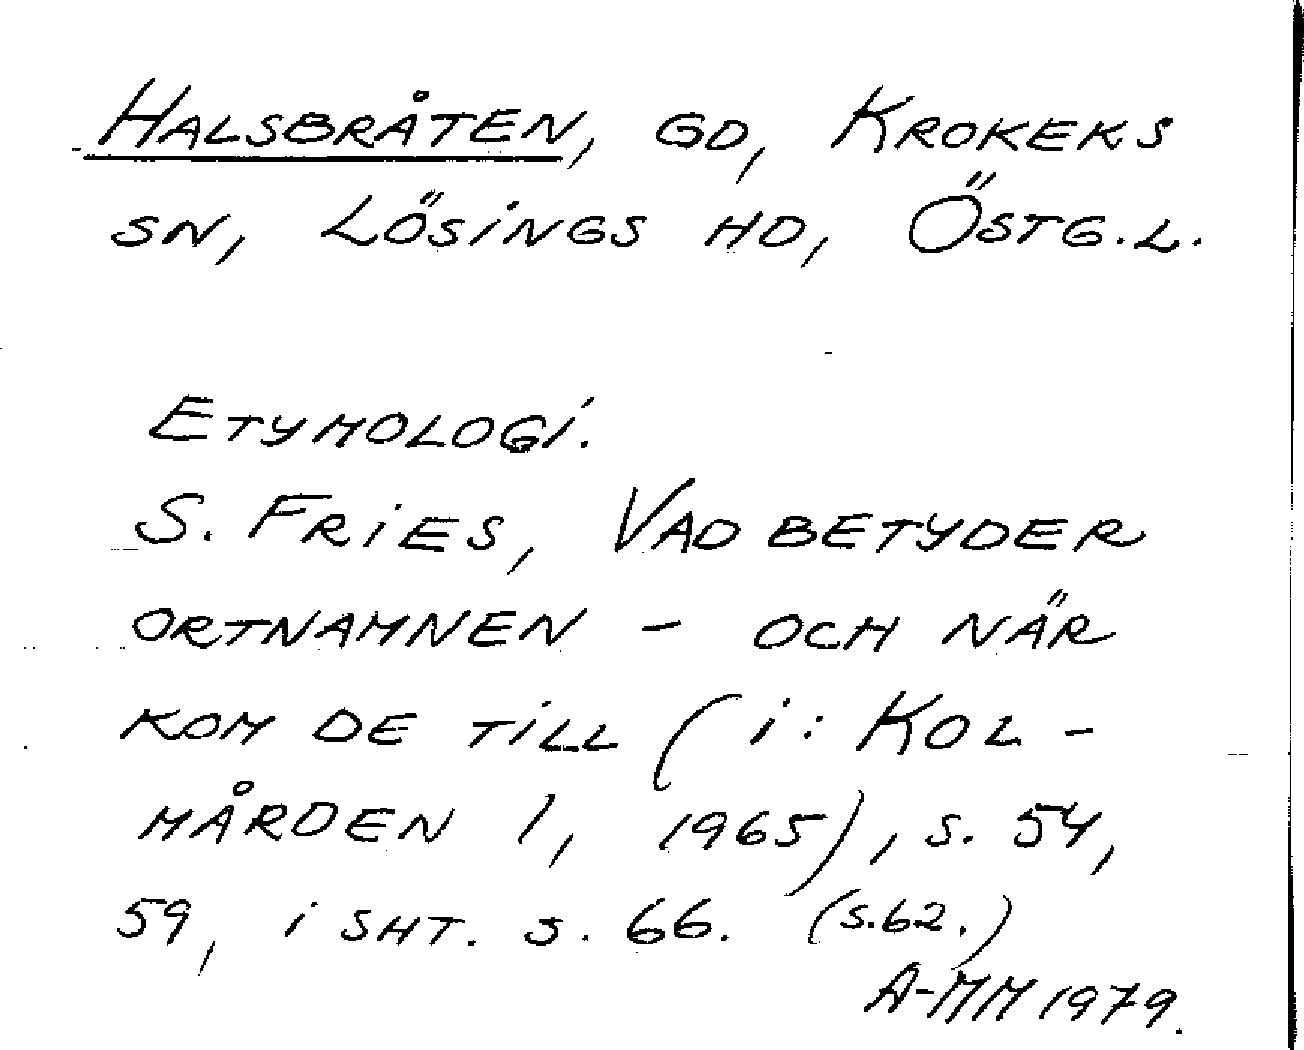 HALSBRÅTEN, GD, KROKEKS
SN, LÖSINGS HD, ÖSTG.L.
ETYMOLOGI.
S. FRIES, VAD BETYDER
ORTNAMNEN - OCH NÄR
KOM DE TILL (I: KOL-
MÅRDEN 1, 1965), S. 54,
59, I SHT. S. 66. (S.62.)
A-MM 1979.